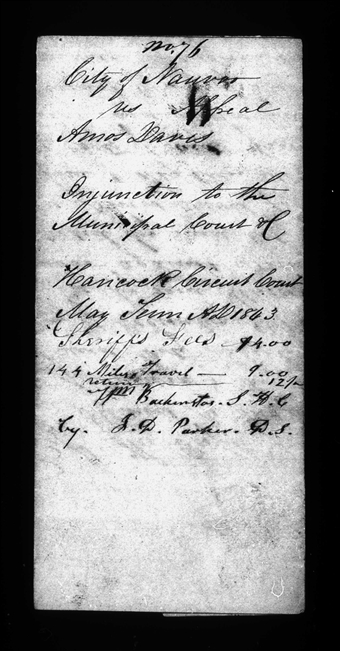 No. 76
City of Nauvoo
vs Appeal
Amos Davis
Injunction to the
Municipal Court &C
Hancock Circuit Court
May Term AD 1843
Sheriff's Fees — 
144 Miles Travel — 9.00
return — 12½
Backenstos. S. H. C
by. J. D. Parker. D. S.